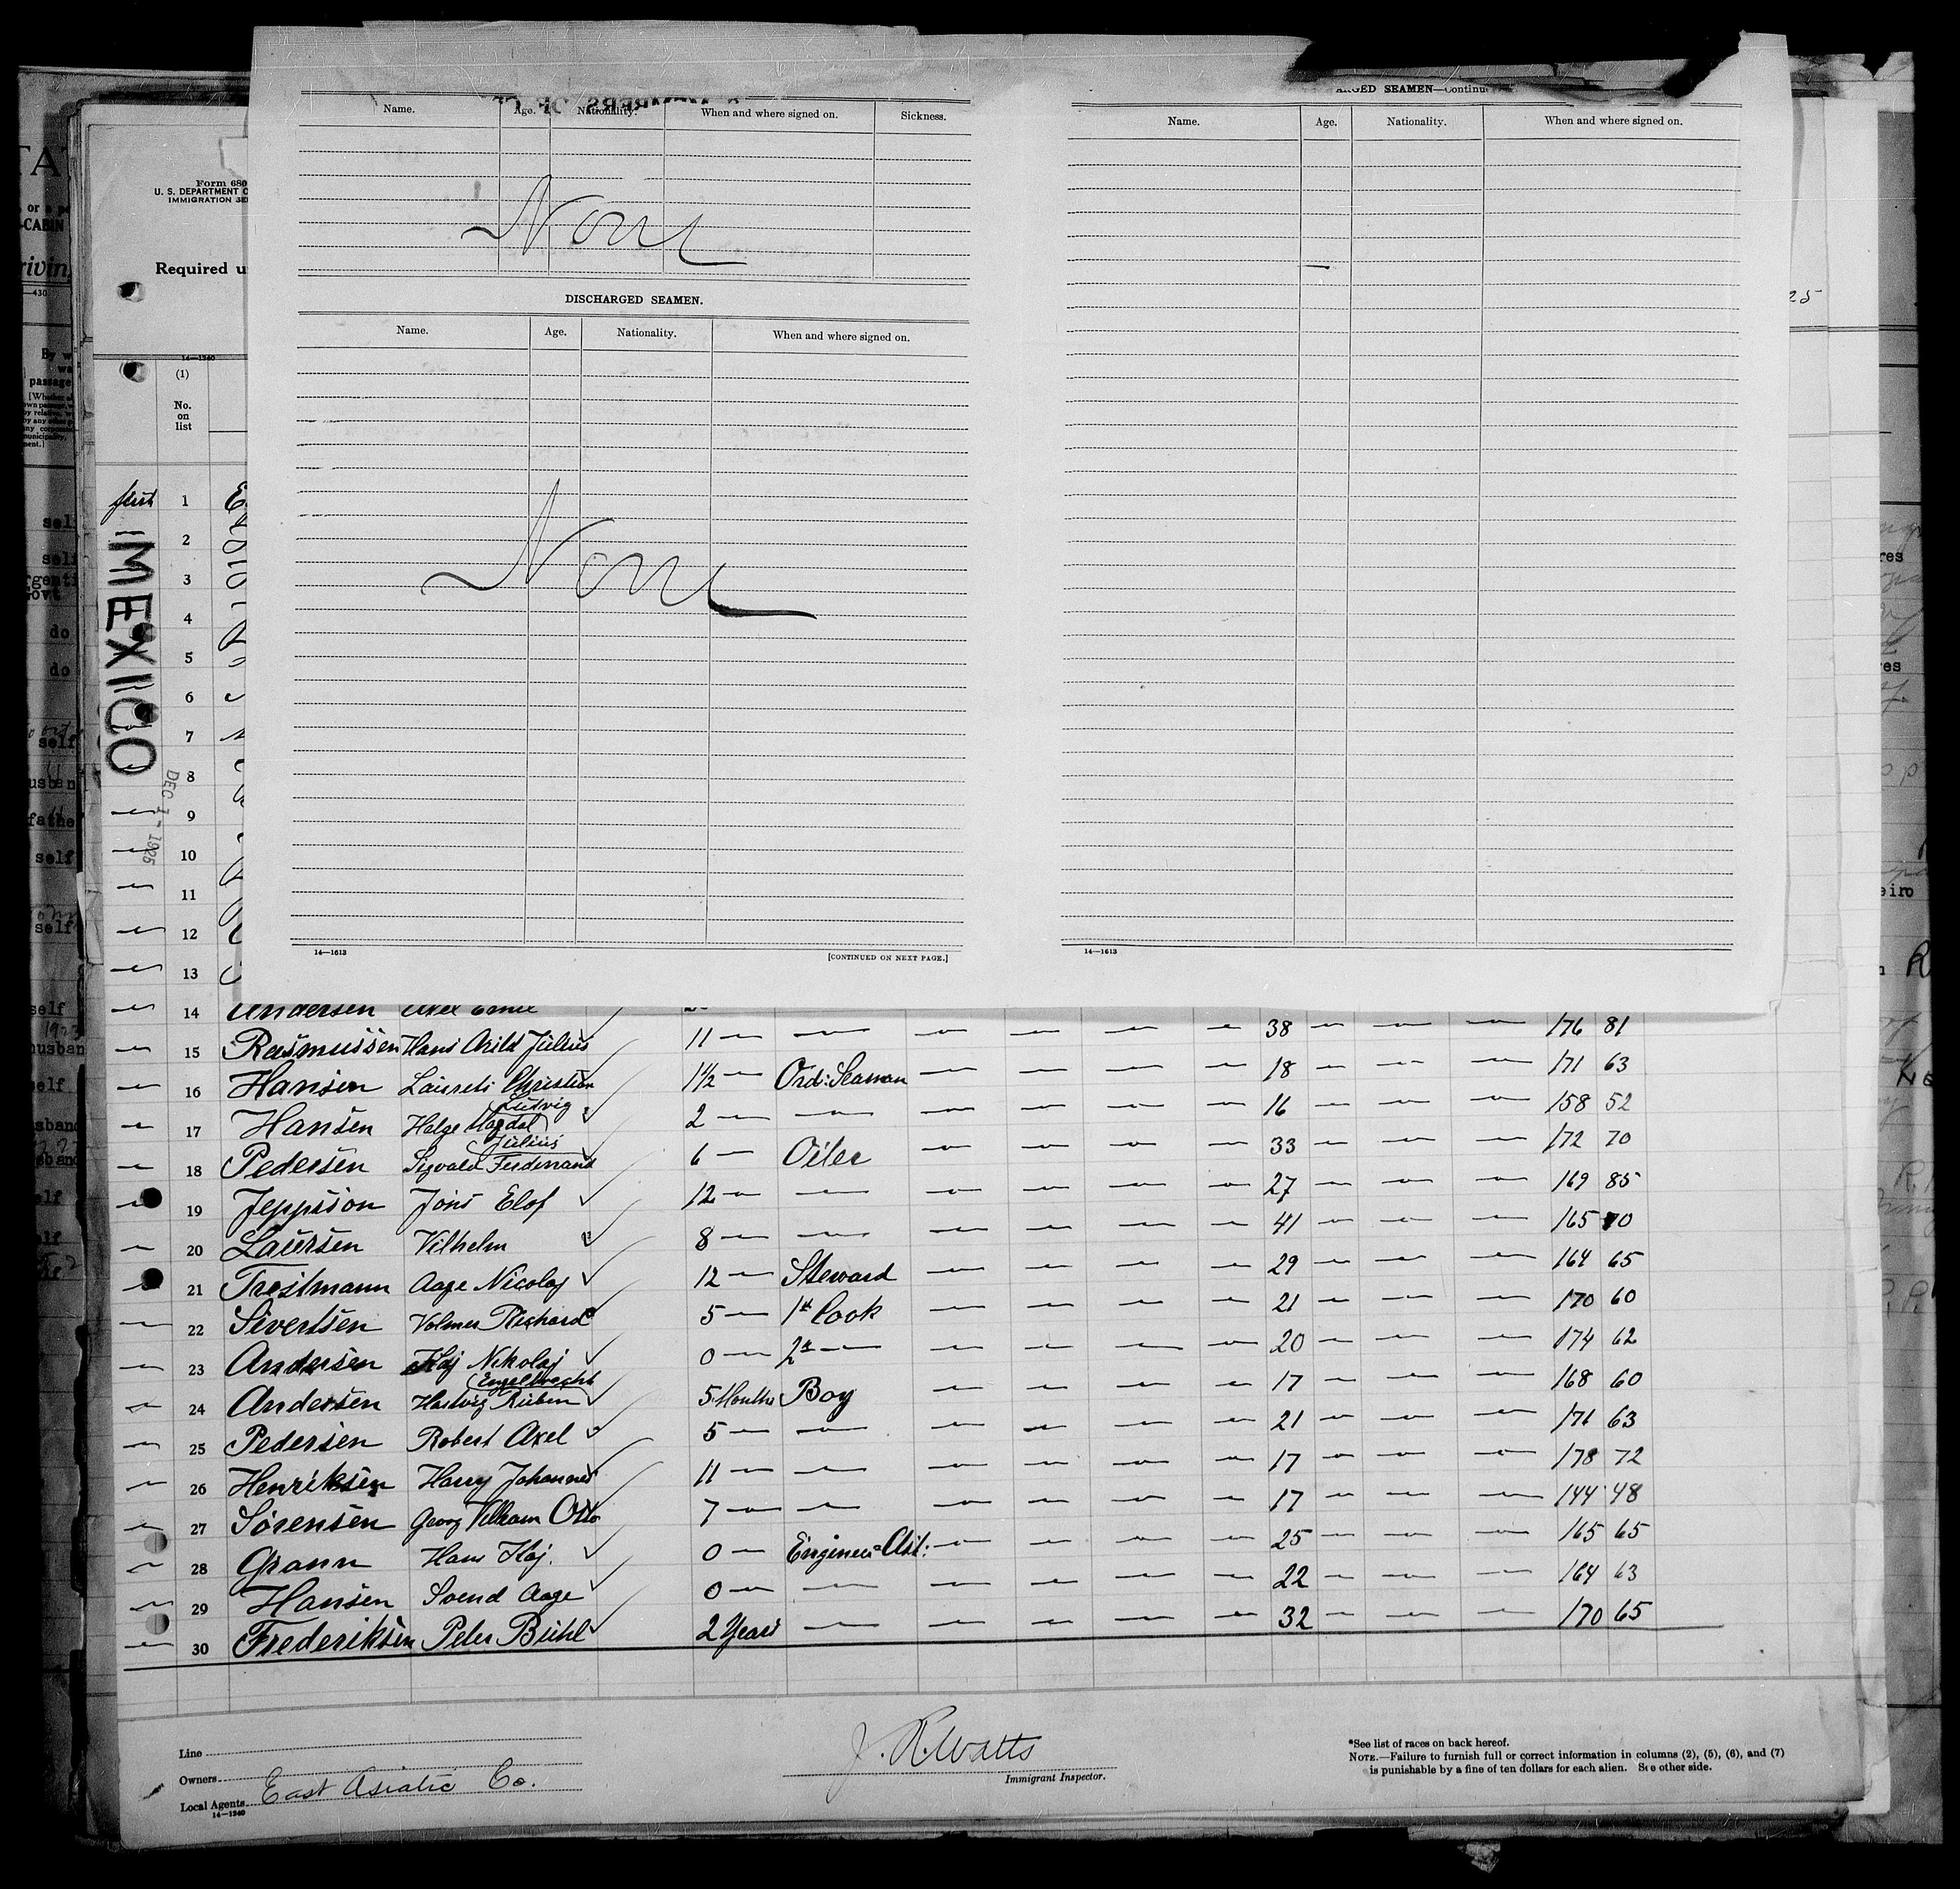 ARGED SEAMEN—Continu
Name. Age. Nationality. When and where signed on. Sickness.
None
DISCHARGED SEAMEN.
Name. Age. Nationality. When and where signed on.
None
14—1613 [CONTINUED ON NEXT PAGE.]
Name. Age. Nationality. When and where signed on.
14—1613
Form 680
U. S. DEPARTMENT O
IMMIGRATION SE
Required u
25
14—1240
(1)
No.
on
list
first 1
2
3
4
5
6
7
8
9
10
11
12
13
MEXICO
DEC 1 - 1925
14 Andersen Axel Emil
15 Rasmussen Hans Arild Julius 11 — — 38 176 81
16 Hansen Laurets Christian 1½ — Ord: Seaman 18 171 63
Ludvig
17 Hansen Helge Magdal 2 — — 16 158 52
Julius
18 Pedersen Sigvald Ferdinand 6 — Oiler 33 172 70
19 Jeppsson Jöns Elof 12 — — 27 169 85
20 Laursen Vilhelm 8 — — 41 165 70
21 Trostmann Aage Nicolaj 12 — Steward 29 164 65
22 Sivertsen Volmer Richard 5 — 1st Cook 21 170 60
23 Andersen Kaj Nikolaj 0 — 2n — 20 174 62
Engelbrecht
24 Andersen Hartvig Ruben 5 Months Boy 17 168 60
25 Pedersen Robert Axel 5 — — 21 171 63
26 Henriksen Harry Johannes 11 — — 17 178 72
27 Sørensen Georg Vilham Otto 7 — — 17 144 48
28 Grann Hans Kaj. 0 — Engineer Ast: 25 165 65
29 Hansen Svend Aage 0 — — 22 164 63
30 Frederiksen Peter Buhl 2 Years — 32 170 65
Line
Owners
East Asiatic Co.
Local Agents
14—1240
J. R. Watts
Immigrant Inspector.
*See list of races on back hereof.
NOTE.—Failure to furnish full or correct information in columns (2), (5), (6), and (7)
is punishable by a fine of ten dollars for each alien. See other side.